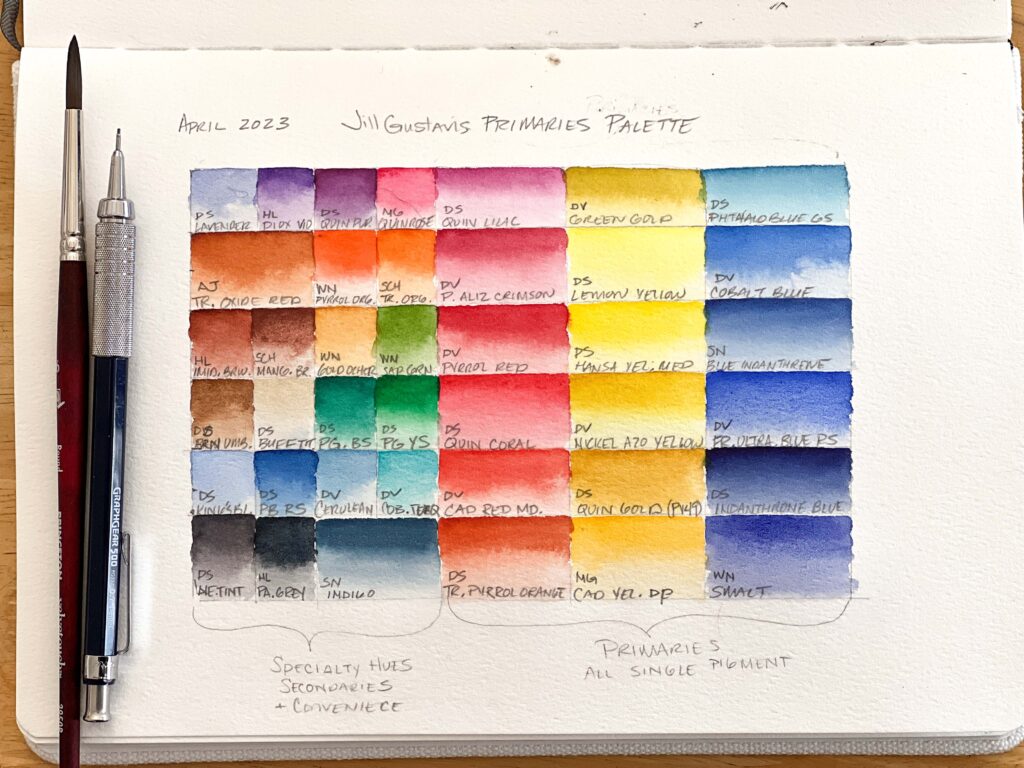 April 2023
Jill Gustavis Primaries Palette
DS Lavender
HL Diox Vio
DS Quin Pur.
MG Quin Rose
DS Quin Lilac
DV Green Gold
DS Phthalo Blue GS
AJ Tr. Oxide Red
WN Pyrrol Org.
SCH Tr. Org.
DV P. Aliz Crimson
DS Lemon Yellow
DV Cobalt Blue
HL Imid. Brw.
SCH Mang. Br.
WN Gold Ocher
WN Sap Grn.
DV Pyrrol Red
DS Hansa Yel. Med
SN Blue Indanthrene
Umb.
DS Buff
DS PG. BS
DS PG YS
DS Quin Coral
DV Nickel Azo Yellow
DV Fr. Ultra. Blue RS
DS King's Bl.
DS PB. RS
DV Cerulean
DV Cob. Turq
DV Cad Red Md.
DS Quin Gold
DS Indanthrone Blue
DS Ne. Tint
HL Pa. Grey
SN Indigo
DS Tr. Pyrrol Orange
MG Cad Yel. Dp
WN Smalt
Specialty Hues
Secondaries
+ Conveniece
Primaries
All Single Pigment
GRAPHGEAR 500
PRINCETON